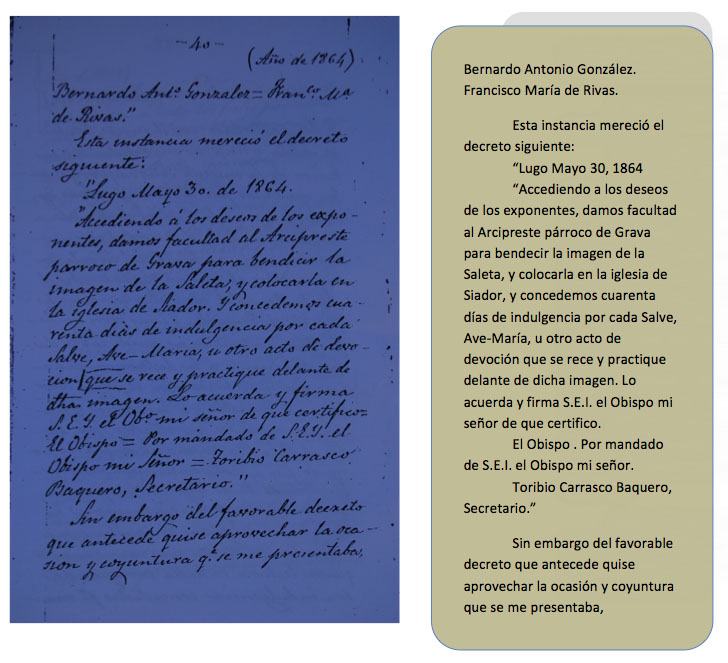 -40-
(Año de 1864)
Bernardo Antº Gonzalez = Franco. Mª
de Rivas."
Esta instancia mereció el decreto
siguiente:
"Lugo Mayo 30. de 1864.
"Accediendo á los deseos de los expo-
nentes, damos facultad al Arcipreste
parroco de Grava para bendicir la
imagen de la Saleta, y colocarla en
la iglesia de Siador. Y concedemos cua-
renta dias de indulgencia por cada
Salve, Ave-Maria, u otro acto de devo-
cion que se rece y practique delante de
dha imagen. Lo acuerda y firma
S.E.Y. el Obpo mi señor de que certifico=
El Obispo = Por mandado de S.E.Y. el
Obispo mi Señor = Toribio Carrasco
Baquero, Secretario."
Sin embargo del favorable decreto
que antecede quise aprovechar la oca-
sion y coyuntura qe. se me presentaba,
Bernardo Antonio González.
Francisco María de Rivas.
Esta instancia mereció el
decreto siguiente:
"Lugo Mayo 30, 1864
"Accediendo a los deseos
de los exponentes, damos facultad
al Arcipreste párroco de Grava
para bendecir la imagen de la
Saleta, y colocarla en la iglesia de
Siador, y concedemos cuarenta
días de indulgencia por cada Salve,
Ave-María, u otro acto de
devoción que se rece y practique
delante de dicha imagen. Lo
acuerda y firma S.E.I. el Obispo mi
señor de que certifico.
El Obispo . Por mandado
de S.E.I. el Obispo mi señor.
Toribio Carrasco Baquero,
Secretario."
Sin embargo del favorable
decreto que antecede quise
aprovechar la ocasión y coyuntura
que se me presentaba,